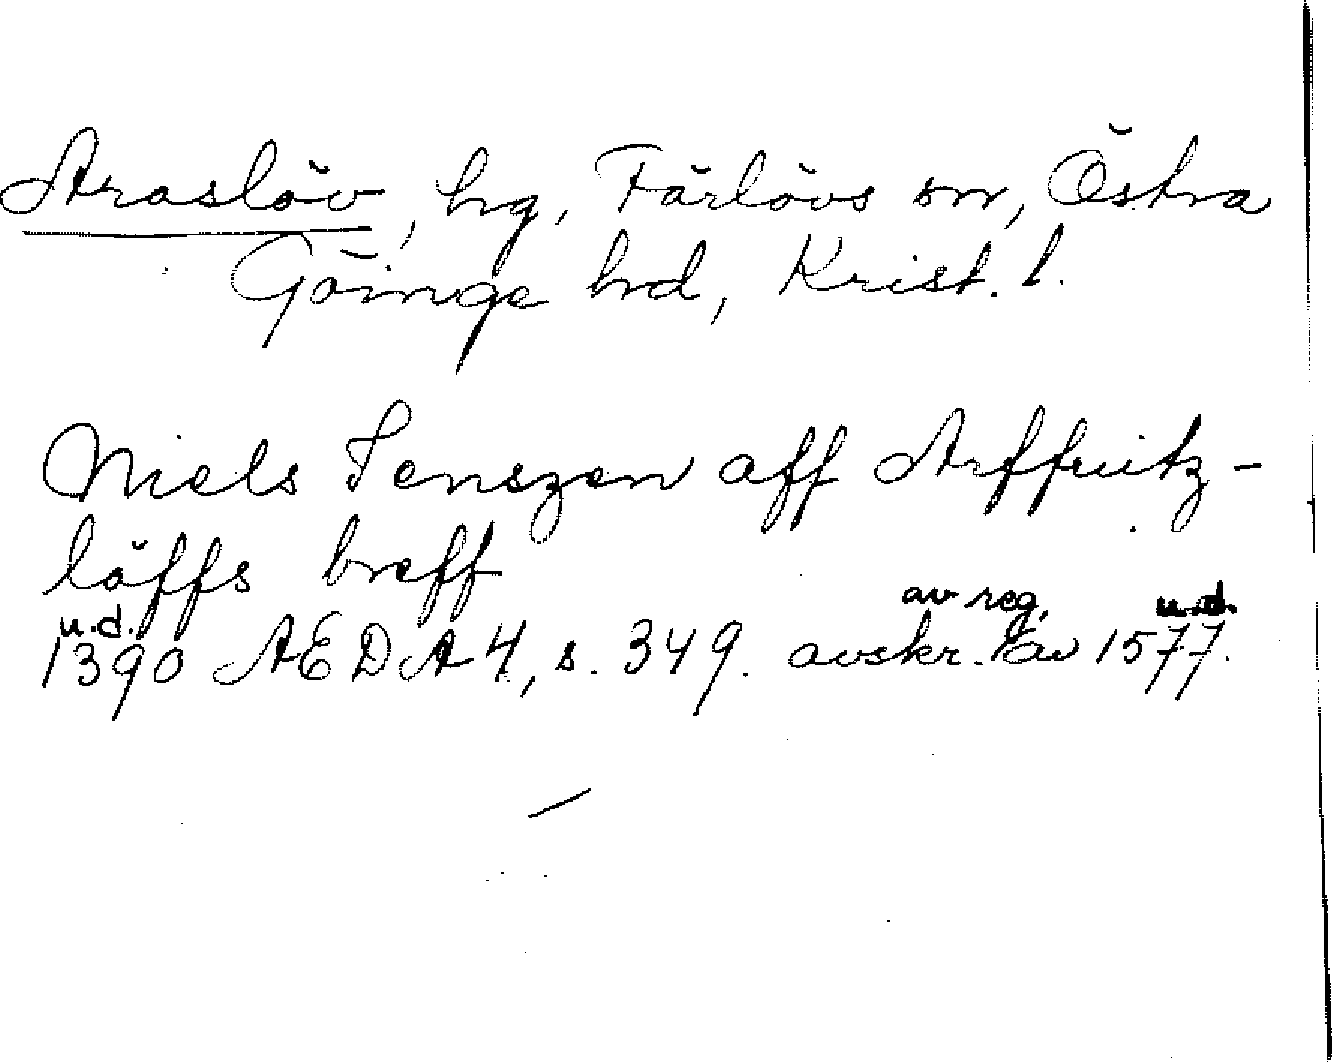 Araslöv, hg, Färlövs sn, Östra
Göinge hd, Krist. l.
Niels Jenszen aff Arffuitz-
löffs breff
u.d. av reg. u.d.
1390 AEDA 4, s. 349. avskr. av 1577.